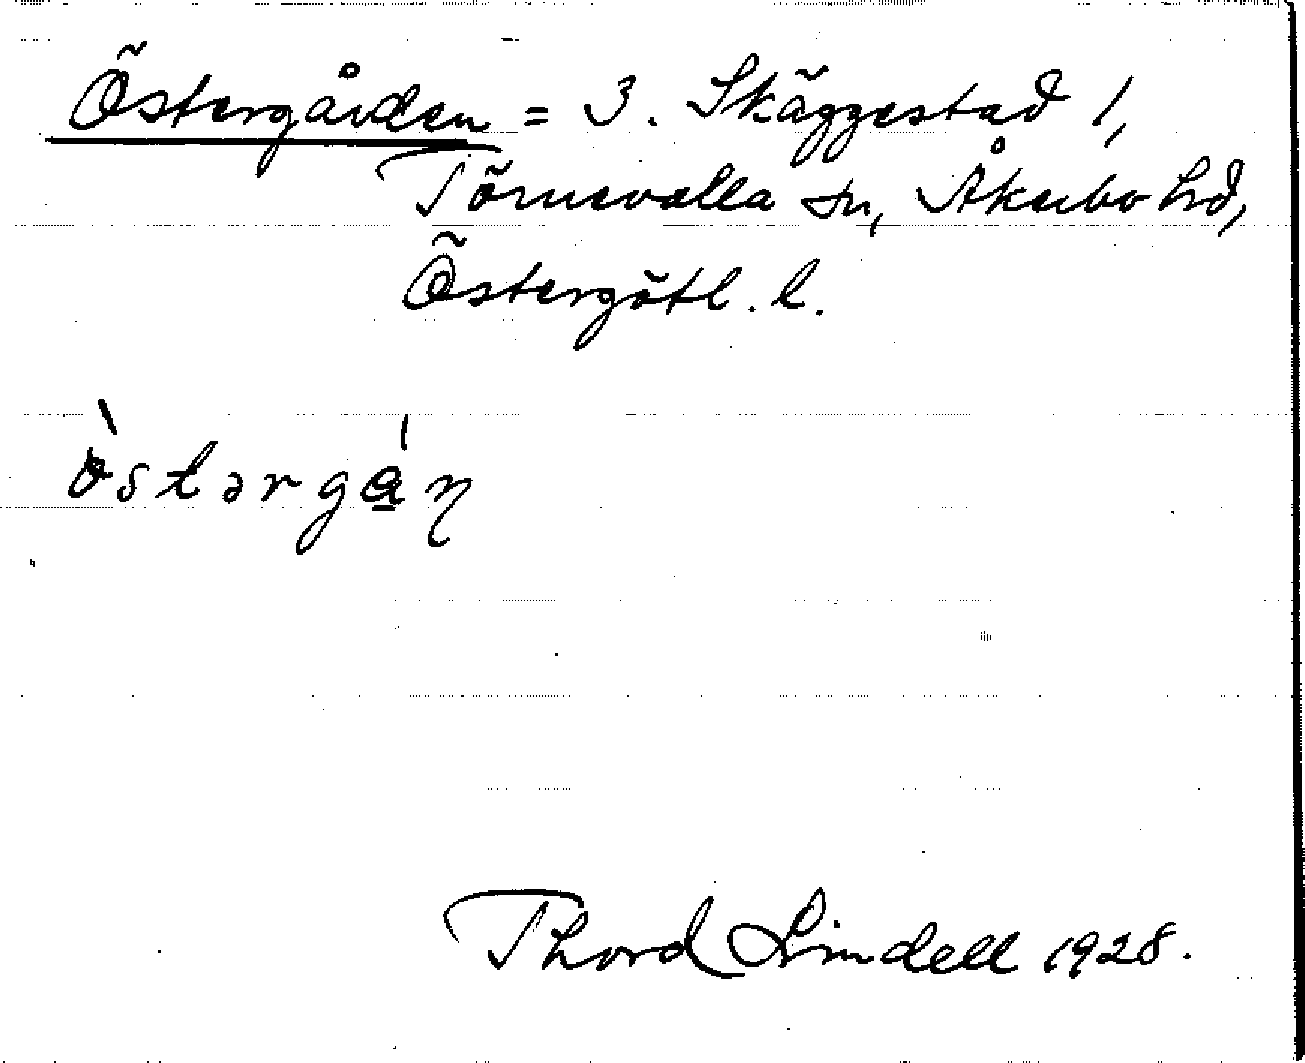 Östergården = 3. Skäggestad 1,
Törnevalla sn, Åkerbo hd,
Östergötl. l.
ö̀stərgá̱ɳ
Thord Lindell 1928.